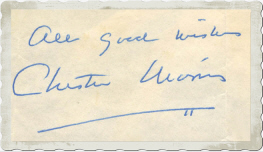 All good wishes
Chester Morris